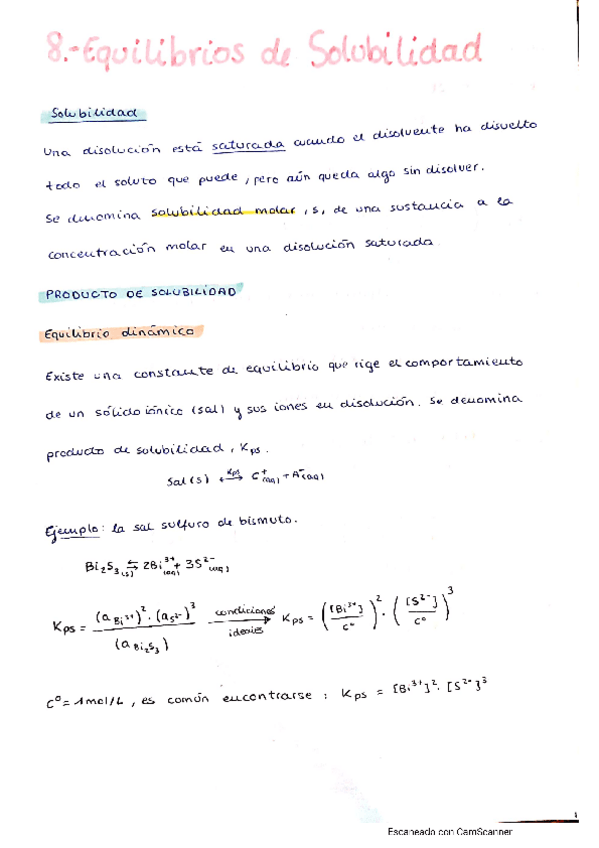 8.-Equilibrios de Solubilidad
Solubilidad
Una disolución está saturada cuando el disolvente ha disuelto
todo el soluto que puede, pero aún queda algo sin disolver.
Se denomina solubilidad molar, s, de una sustancia a la
concentración molar en una disolución saturada.
PRODUCTO DE SOLUBILIDAD
Equilibrio dinámico
Existe una constante de equilibrio que rige el comportamiento
de un sólido iónico (sal) y sus iones en disolución. Se denomina
producto de solubilidad, Kps.
Sal(s) ⟷ Kps C⁺(aq) + A⁻(aq)
Ejemplo: la sal sulfuro de bismuto.
Bi₂S₃(s) ⇆ 2Bi³⁺(aq) + 3S²⁻(aq)
Kps = (a Bi³⁺)² · (a S²⁻)³ / (a Bi₂S₃) condiciones ideales → Kps = ([Bi³⁺] / c⁰)² · ([S²⁻] / c⁰)³
C⁰ = 1mol/L, es común encontrarse : Kps = [Bi³⁺]² · [S²⁻]³
1
Escaneado con CamScanner